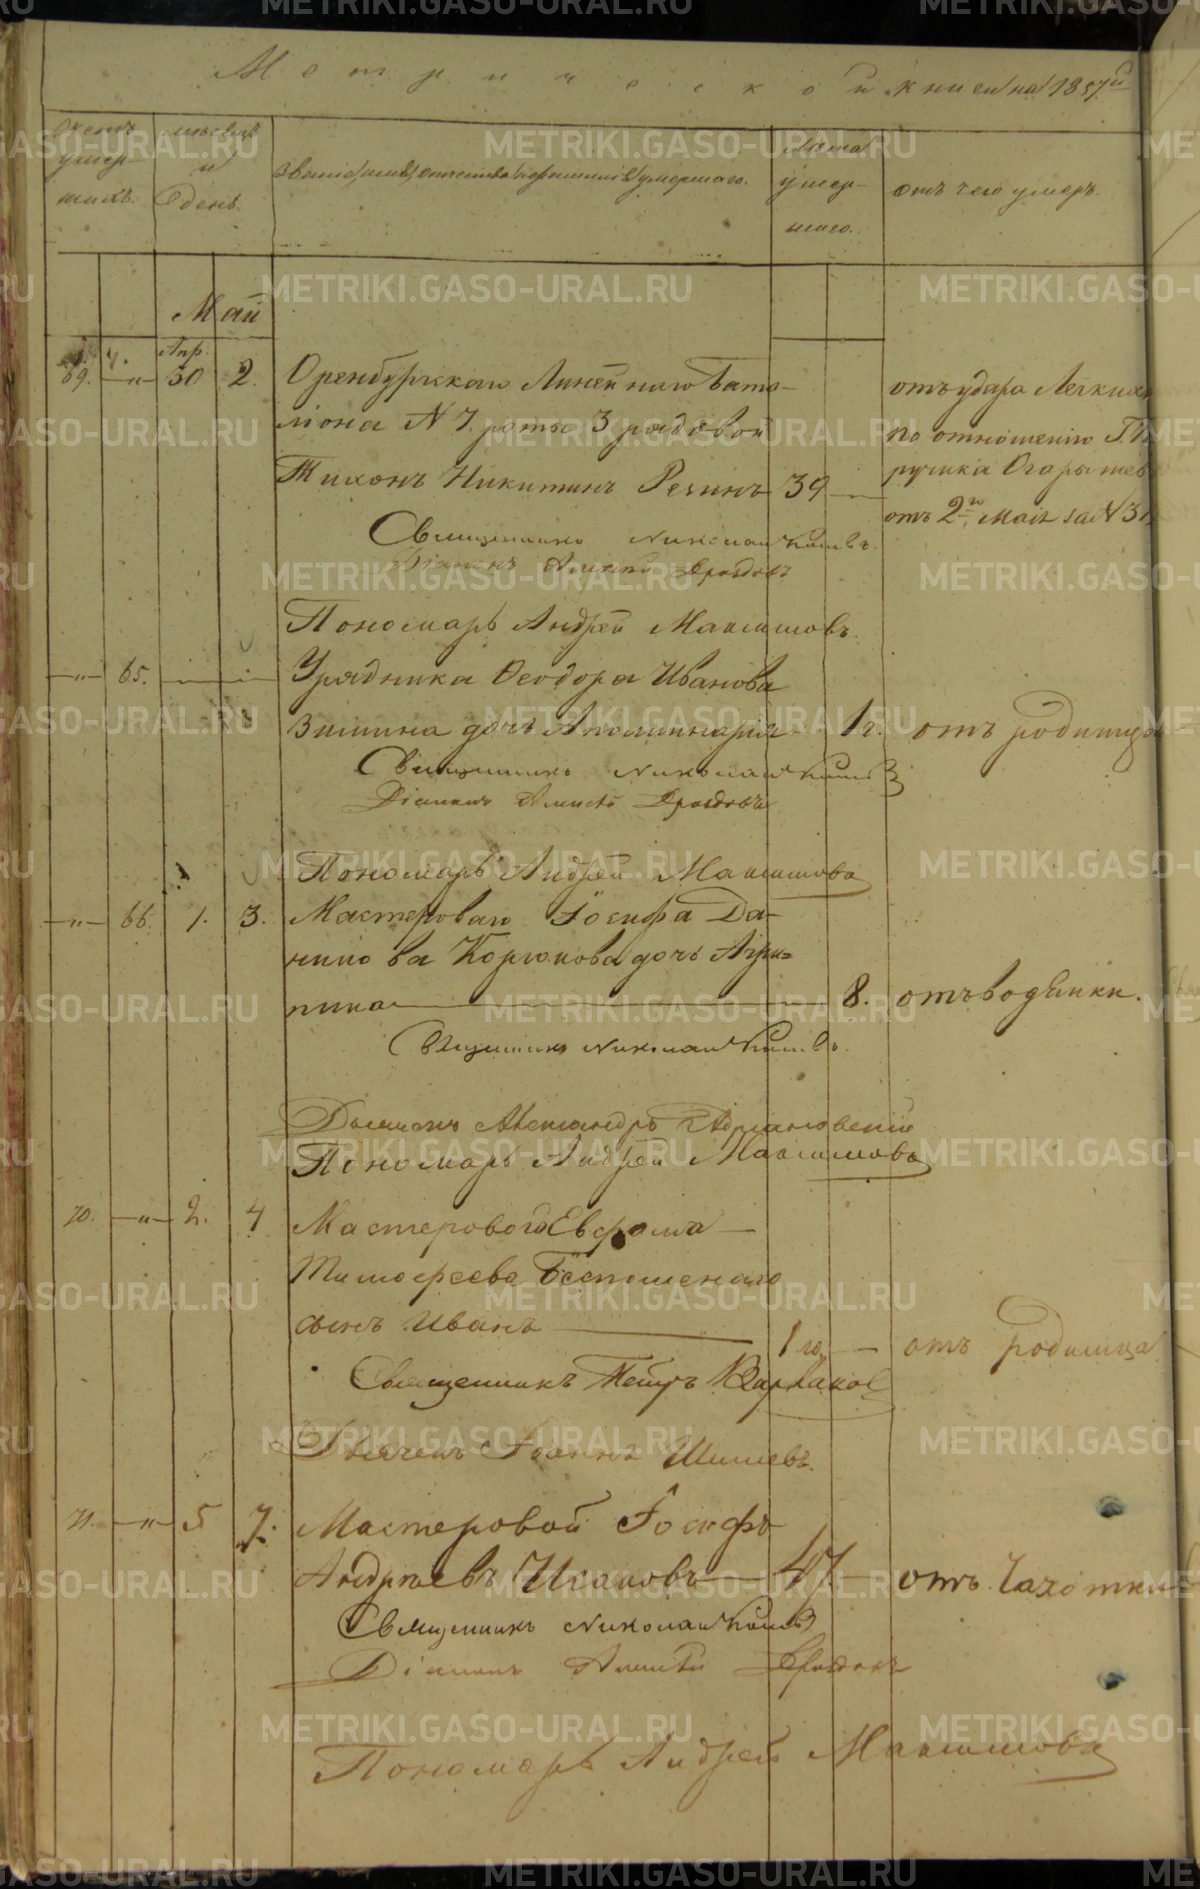 Метрической книги на 1857й
Счетъ умер- шихъ.
мѣсяцъ и день.
Званіе, имя, отчество и фамилія умершаго.
Лѣта умер- шаго.
отъ чего умеръ.
Май
Апр.
69. 30 2. Оренбургскаго Линейнаго Бата-
ліона N 7. роты 3 рядовой
Тихонъ Никитинъ 39
отъ удара Легкихъ
по отношенію
отъ 2го Мая за N
Священникъ Николай
Діаконъ Алексѣй Дроздовъ
Пономарь Андрей Максимовъ.
65. Урядника Ѳеодора Иванова
Зимина дочь Аполлинарія 1 г. отъ родимца
Священникъ Николай
Діаконъ Алексѣй Дроздовъ
Пономарь Андрей Максимовъ
66. 1. 3. Мастероваго Іосифа Да-
нилова Корюкова дочь Агри-
пина 8. отъ водянки.
Священникъ Николай
Діаконъ Александръ Адріановскій
Пономарь Андрей Максимовъ
70. 2. 4 Мастероваго
Тимофеева
сынъ Иванъ 1 го. отъ родимца
Священникъ Петръ
Дьячекъ Іоаннъ Шишевъ.
71. 5 7. Мастеровой Іосифъ
Андреевъ Исаковъ 47 отъ Чахотки
Священникъ Николай
Діаконъ Алексѣй Дроздовъ
Пономарь Андрей Максимовъ
METRIKI.GASO-URAL.RU